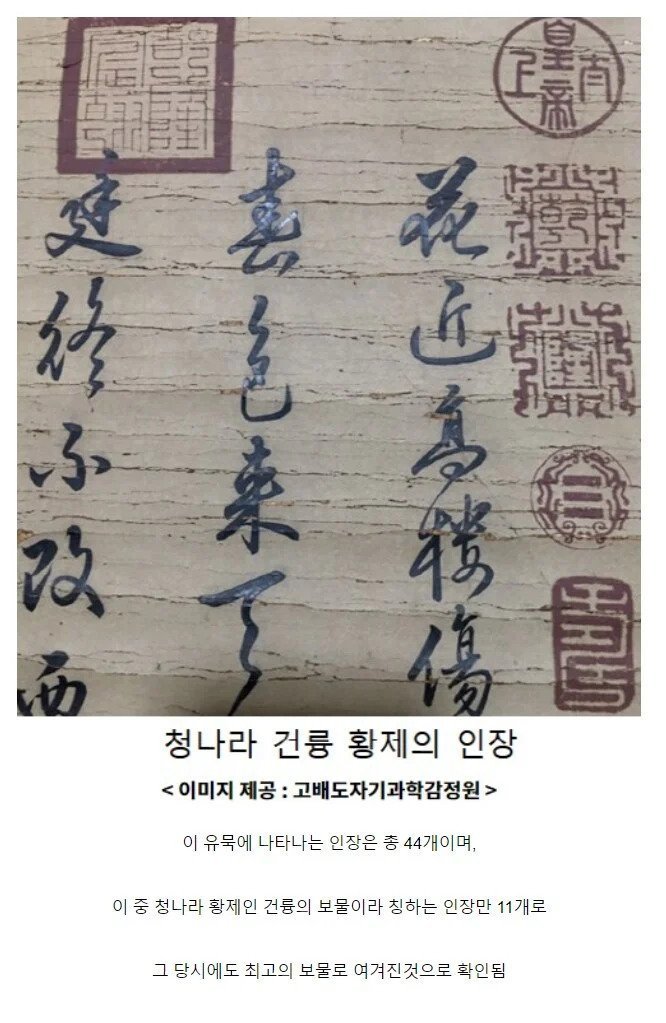 太上皇帝
乾
隆
花近高樓傷
春色來天
廷終不改西
청나라 건륭 황제의 인장
< 이미지 제공 : 고배도자기과학감정원 >
이 유묵에 나타나는 인장은 총 44개이며,
이 중 청나라 황제인 건륭의 보물이라 칭하는 인장만 11개로
그 당시에도 최고의 보물로 여겨진것으로 확인됨